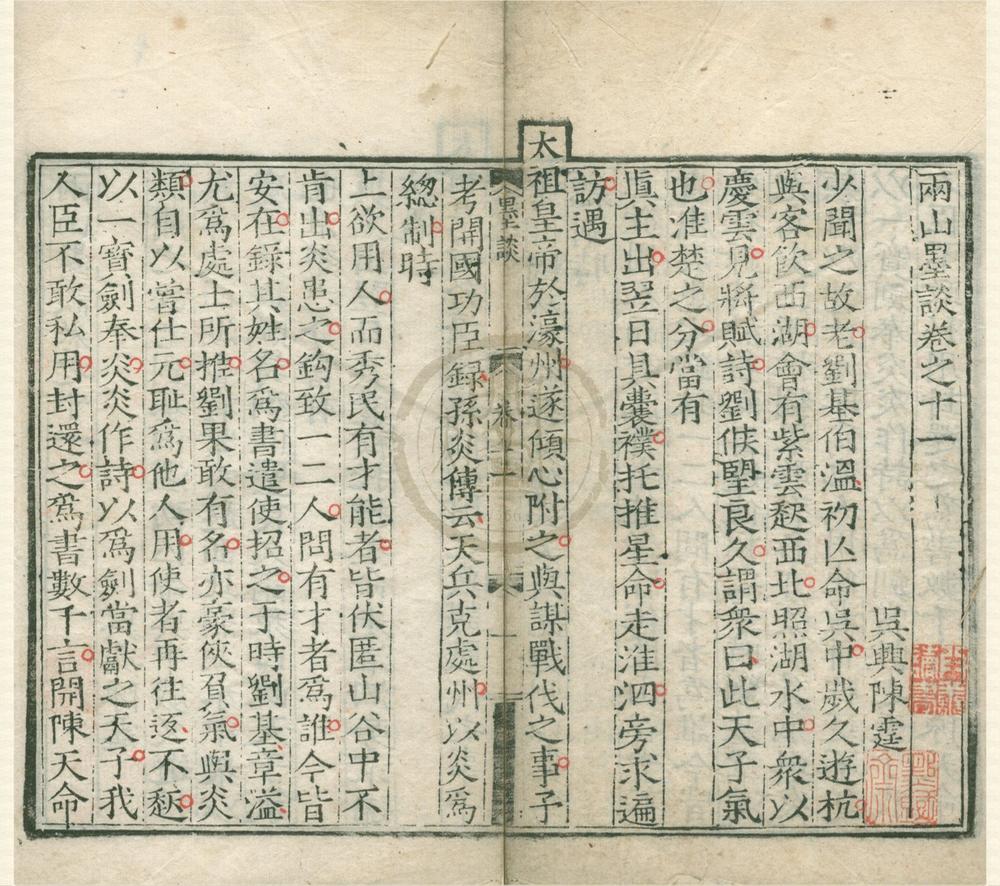 兩山墨談卷之十一
吳興陳霆
少聞之故老劉基伯溫初亾命吳中歲久遊杭
與客飲西湖會有紫雲起西北照湖水中衆以
慶雲見將賦詩劉俟朢良久謂衆曰此天子氣
也准楚之分當有
眞主出翌日具囊襆托推星命走淮泗旁求遍
訪遇
太祖皇帝於濠州遂傾心附之與謀戰伐之事子
墨談
卷十一
一
考開國功臣錄孫炎傳云天兵克處州以炎爲
總制時
上欲用人而秀民有才能者皆伏匿山谷中不
肯出炎患之鈎致一二人問有才者爲誰今皆
安在錄其姓名爲書遣使招之于時劉基章溢
尤爲處士所推劉果敢有名亦豪俠負氣與炎
類自以嘗仕元耻爲他人用使者再往返不起
以一寶劍奉炎炎作詩以爲劍當獻之天子我
人臣不敢私用封還之爲書數千言開陳天命